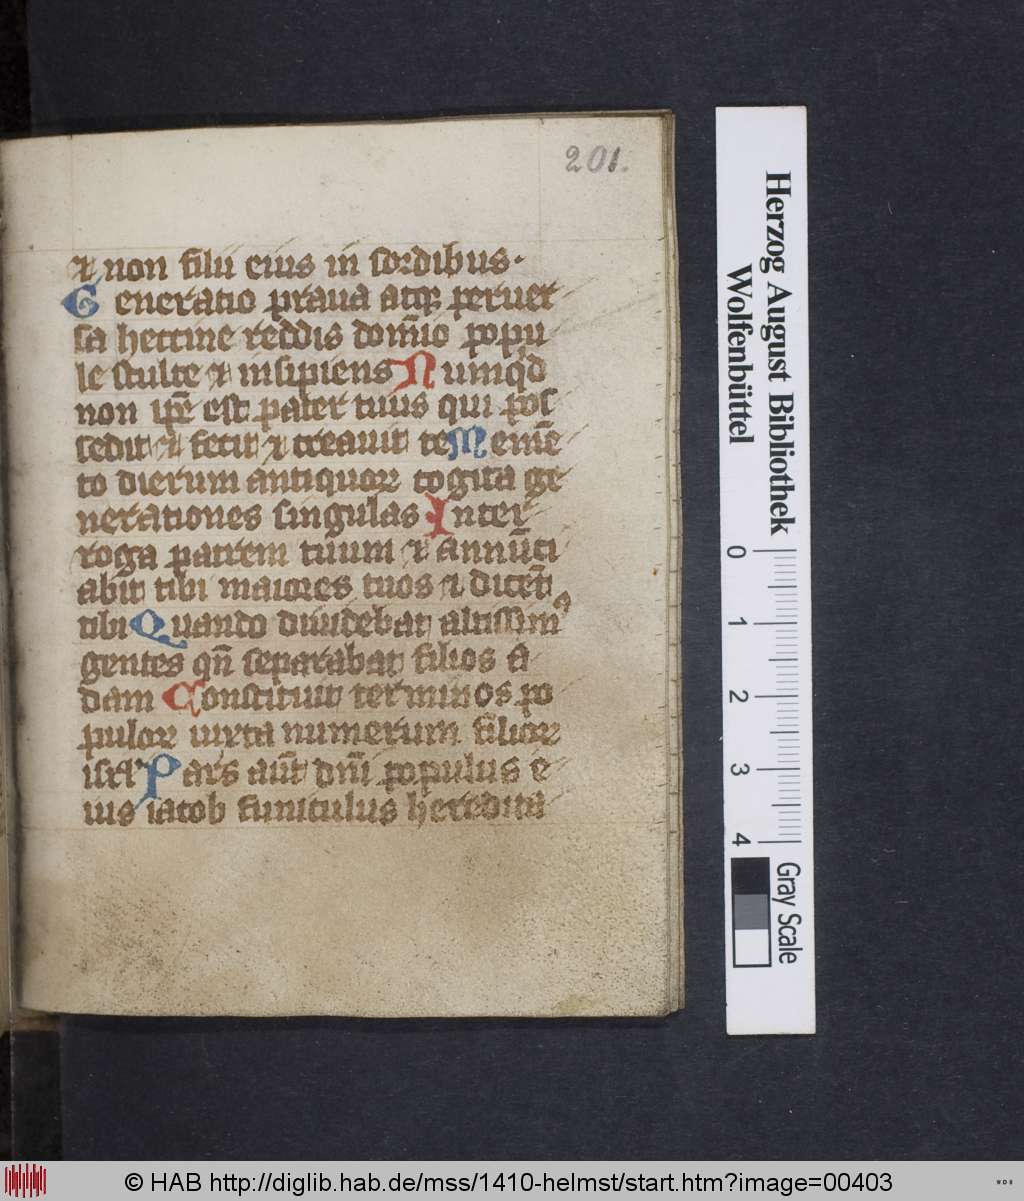 201.
⁊ non filii eius in sordibus.
Generatio praua atqꝫ peruer
sa heccine reddis dom̅io popu
le stulte ⁊ insipiens Numqͥd
non ip̅e est pater tuus qui pos
sedit ⁊ fecit ⁊ creauit te Meme̅
to dierum antiquoꝝ cogita ge
nerationes singulas Inter
roga patrem tuum ⁊ annu̅ci
abit tibi maiores tuos ⁊ dice̅t
tibi Quando diuidebat altissimꝰ
gentes qn̅ separabat filios a
dam Constituit terminos po
puloꝝ iuxta numerum filioꝝ
isrl̅ Pars aut̅ dn̅i populus e
ius iacob funiculus heredita
Herzog August Bibliothek
Wolfenbüttel
0 1 2 3 4
Gray Scale
© HAB http://diglib.hab.de/mss/1410-helmst/start.htm?image=00403